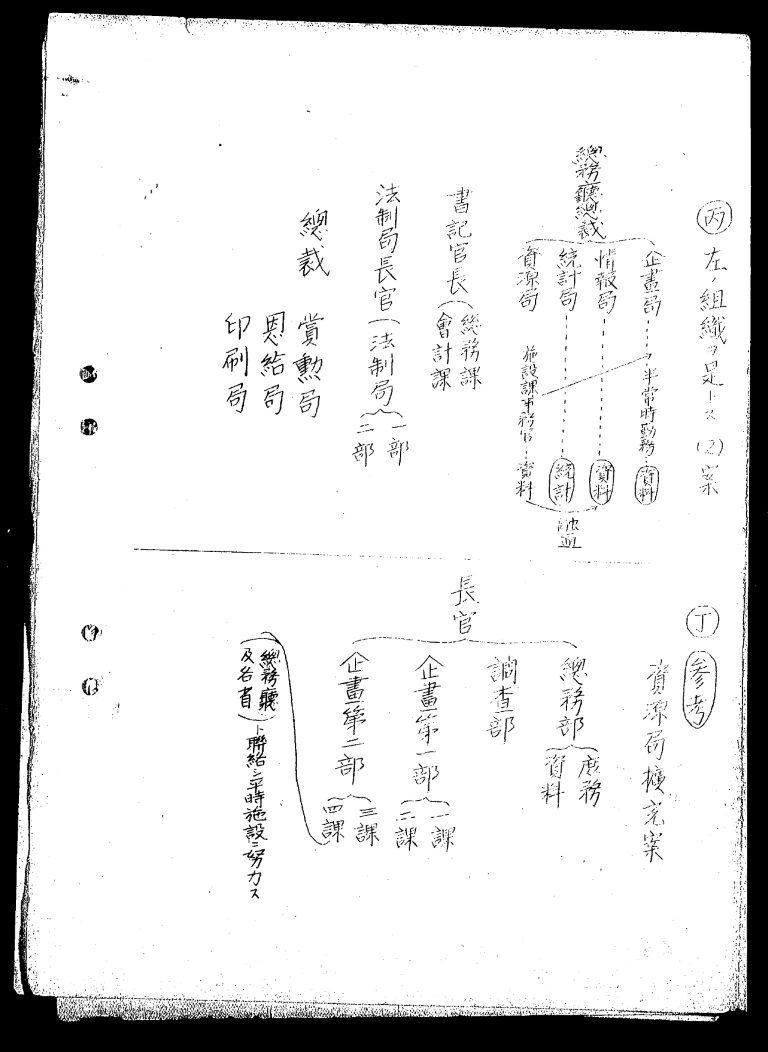 丙 左ノ組織ヲ是トス (2)案
總務廳總裁
企畫局 半常時勤務 資料
情報局 資料
統計局 統計
資源局 施設課事務官 資料
書記官長
總務課
會計課
法制局長官 法制局
一部
二部
總裁 賞勳局
恩給局
印刷局
丁 参考
資源局擴充案
長官
總務部
庶務
資料
調査部
企畫第一部
一課
二課
企畫第二部
三課
四課
總務廳
及各省
ト聯絡シ平時施設ニ努力ス